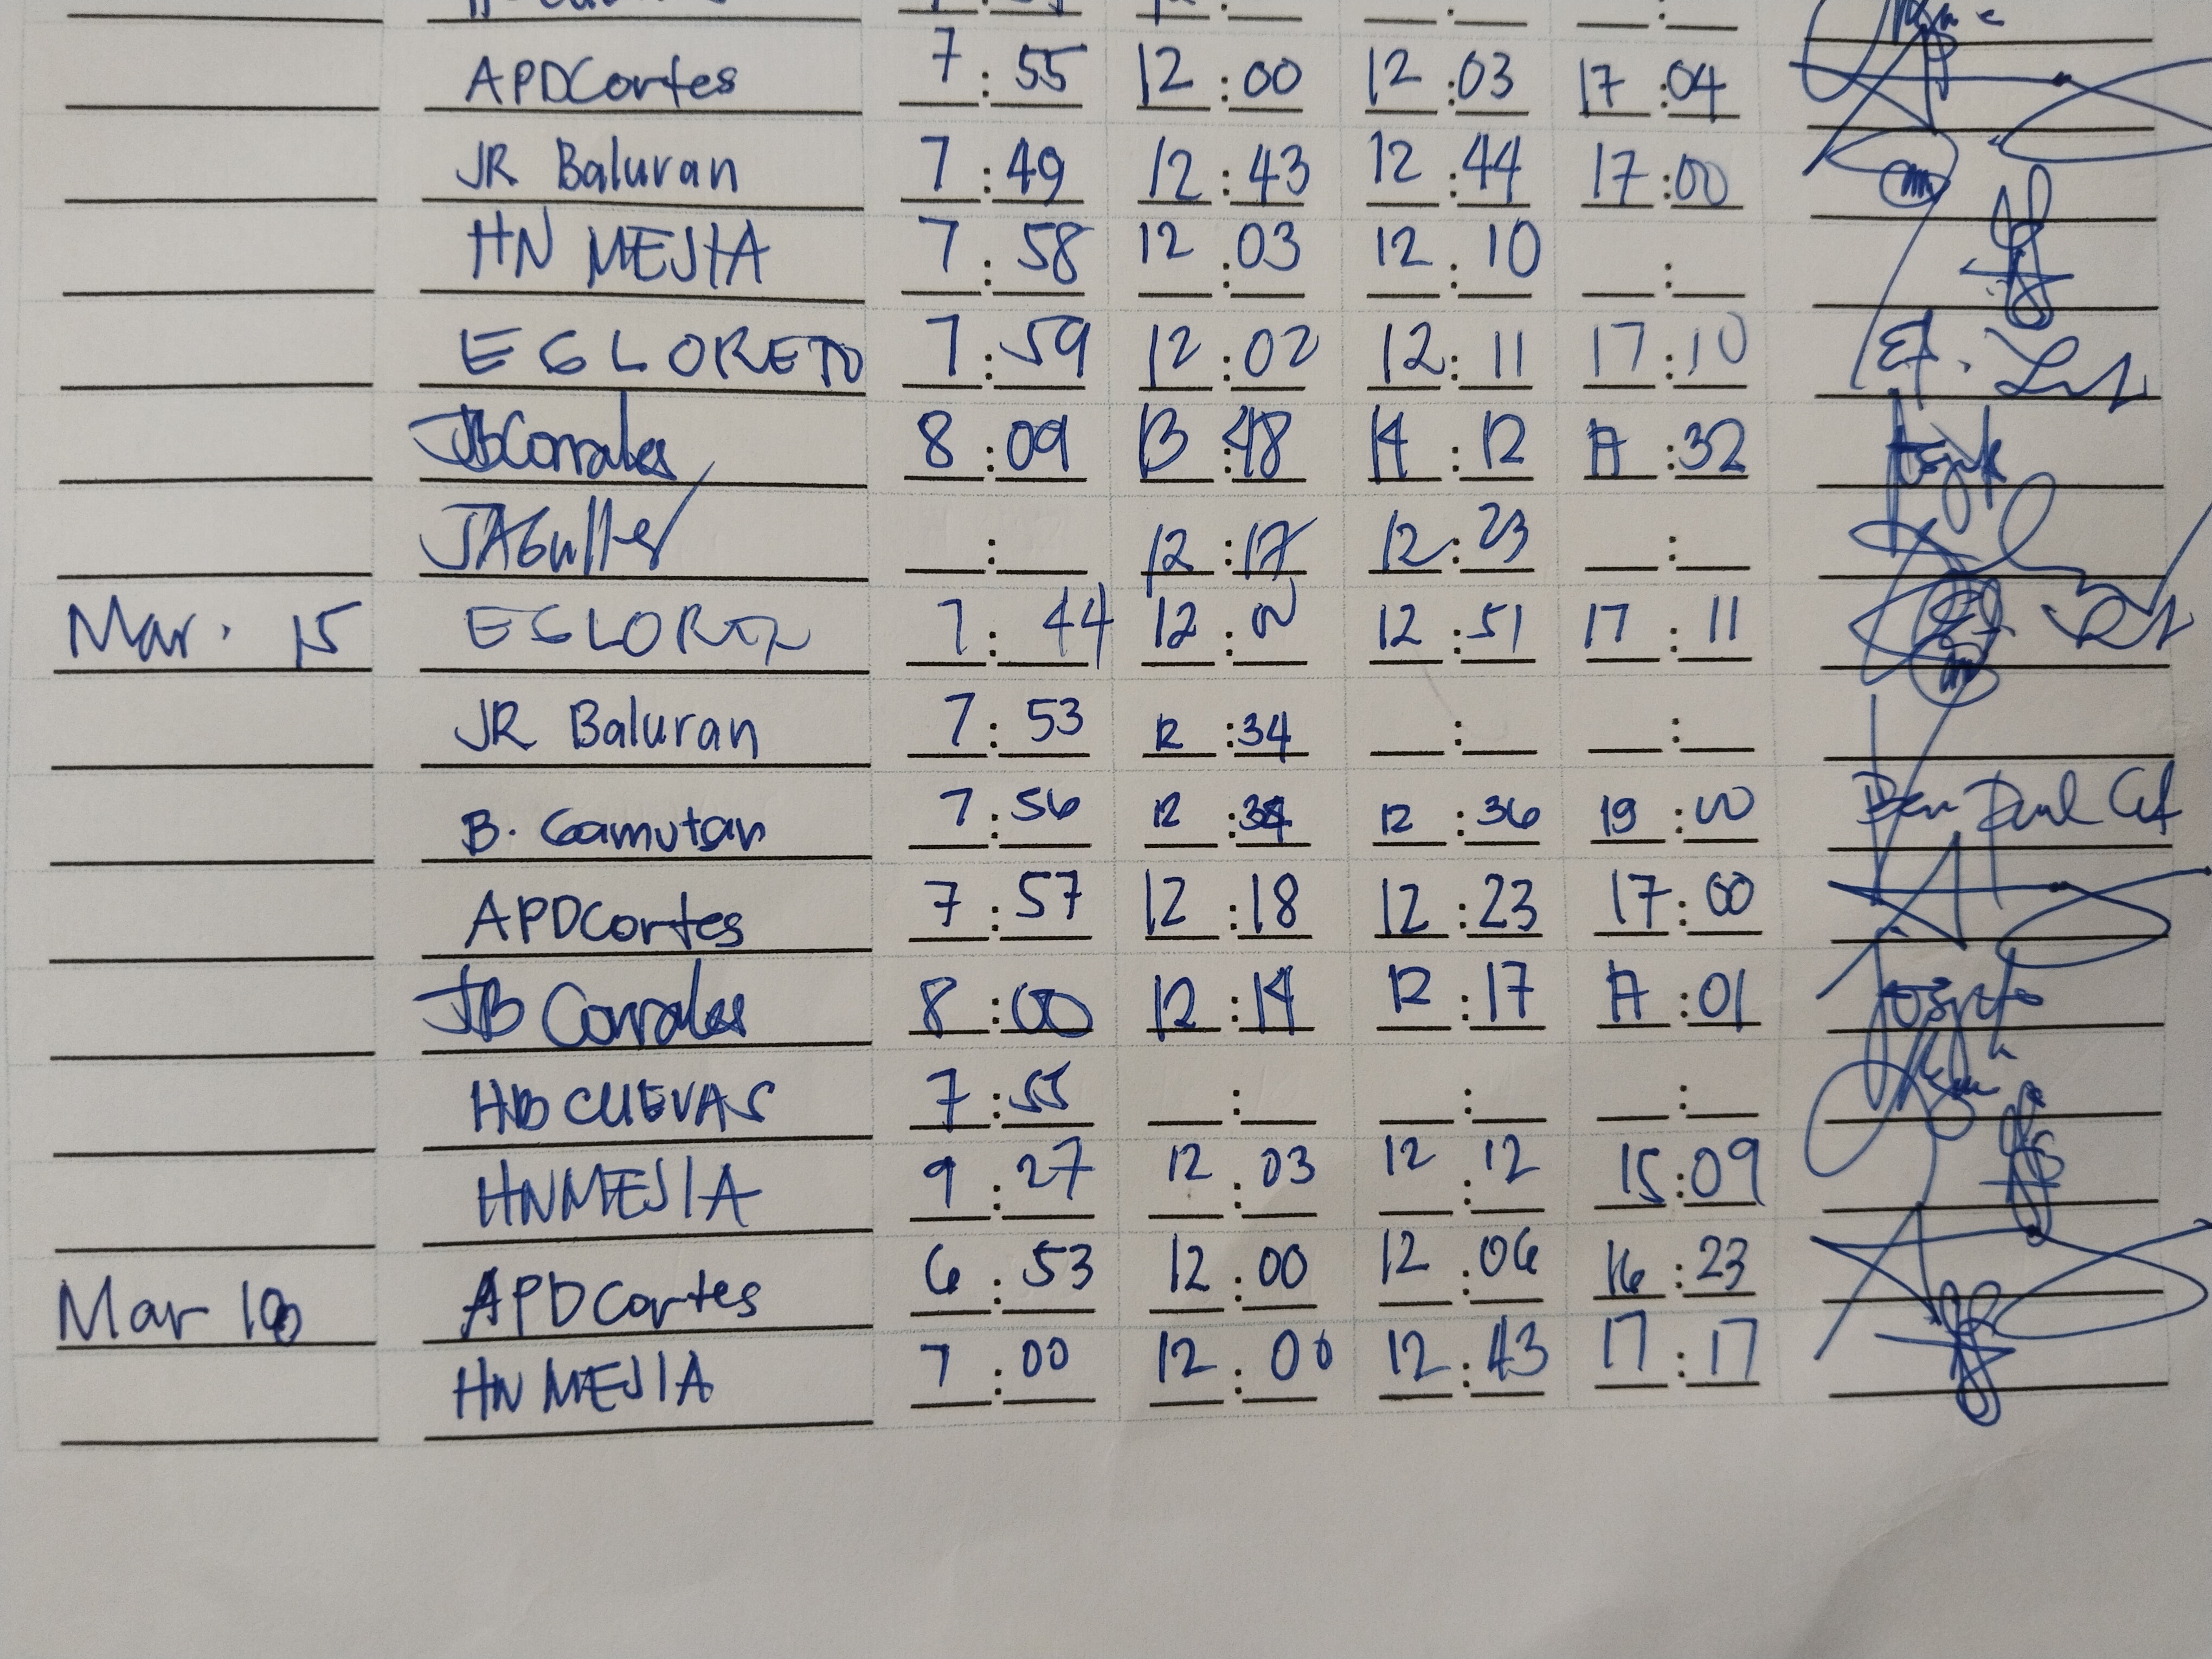 APDCortes 7:55 12:00 12:03 17:04
JR Baluran 7:49 12:43 12:44 17:00
HN MEJIA 7:58 12:03 12:10 :
ESLORETO 7:59 12:02 12:11 17:10
JBCorrales 8:09 13:48 14:12 17:32
: 12:17 12:23 :
Mar. 15 7:44 12:00 12:51 17:11
JR Baluran 7:53 12:34 : :
B. Gamutan 7:56 12:34 12:36 19:00
APDCortes 7:57 12:18 12:23 17:00
JB Corrales 8:00 12:14 12:17 17:01
HB CUEVAS 7:55 : : :
HNMEJIA 9:27 12:03 12:12 15:09
Mar APDCortes 6:53 12:00 12:06 16:23
HN MEJIA 7:00 12:00 12:43 17:17